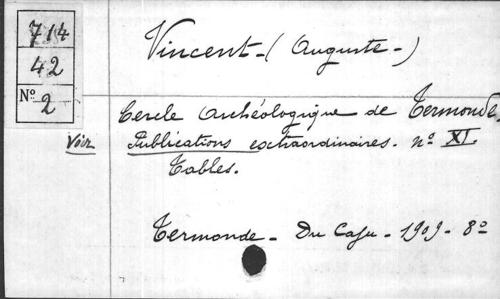 714
42
Nº 2
Vincent - (Auguste -)
Cercle Archéologique de Termonde.
Voir Publications extraordinaires. nº XI
Tables.
Termonde - Du Caju - 1909 - 8º